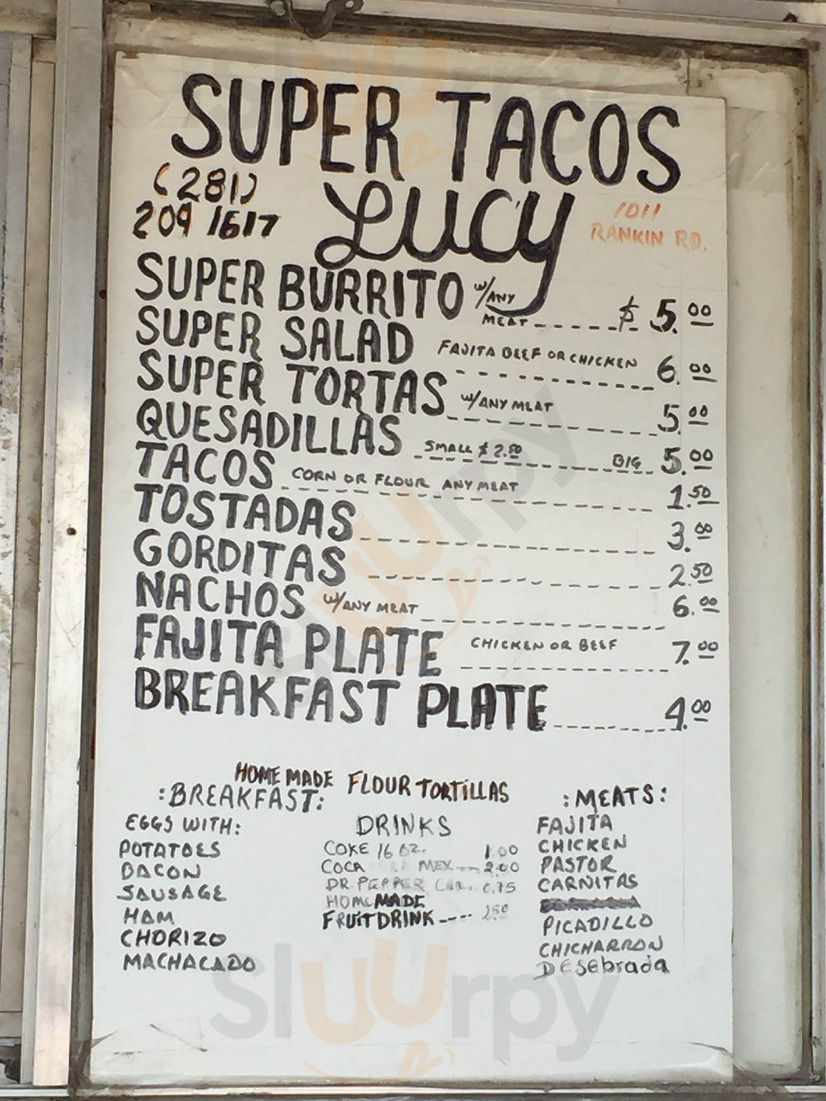 SUPER TACOS
(281)
209 1617
Lucy
1011
RANKIN RD.
SUPER BURRITO w/ANY MEAT $ 5.00
SUPER SALAD FAJITA BEEF OR CHICKEN 6.00
SUPER TORTAS w/ANY MEAT 5.00
QUESADILLAS SMALL $ 2.50 BIG 5.00
TACOS CORN OR FLOUR ANY MEAT 1.50
TOSTADAS 3.00
GORDITAS 2.50
NACHOS w/ANY MEAT 6.00
FAJITA PLATE CHICKEN OR BEEF 7.00
BREAKFAST PLATE 4.00
HOME MADE FLOUR TORTILLAS
:BREAKFAST:
EGGS WITH:
POTATOES
BACON
SAUSAGE
HAM
CHORIZO
MACHACADO
DRINKS
COKE 16 OZ. 1.00
COCA MEX 2.00
DR. PEPPER CAN 0.75
HOMEMADE
FRUIT DRINK 2.50
:MEATS:
FAJITA
CHICKEN
PASTOR
CARNITAS
PICADILLO
CHICHARRON
DESEbrada
Sluurpy
Sluurpy